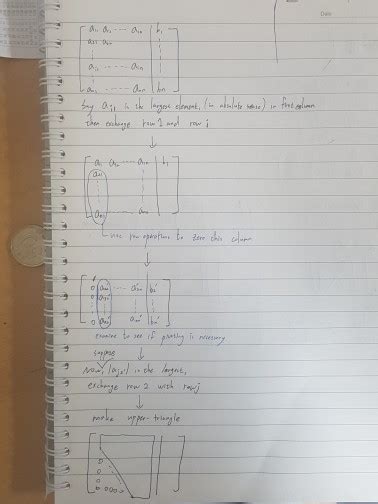 a₁₁ a₁₂ ---- a₁ₙ | b₁
a₂₁ a₂₂
aⱼ₁ ---- aⱼₙ
aₙ₁ ---- aₙₙ | bₙ
Say aⱼ₁ is the largest element, (in absolute sense) in first column
then exchange row 1 and row j
↓
a₁₁ a₁₂ ---- a₁ₙ | b₁
a₂₁
aₙ₁ ---- aₙₙ
use row operations to zero this column
↓
0 a₂₂' ---- a₂ₙ' | b₂'
0
0 aₙ₂' aₙₙ' | bₙ'
examine to see if pivoting is necessary
suppose ↓
Now, |aⱼ₂'| is the largest,
exchange row 2 with row j
↓
make upper-triangle
0
0
0
0 0 0 0 0
Date